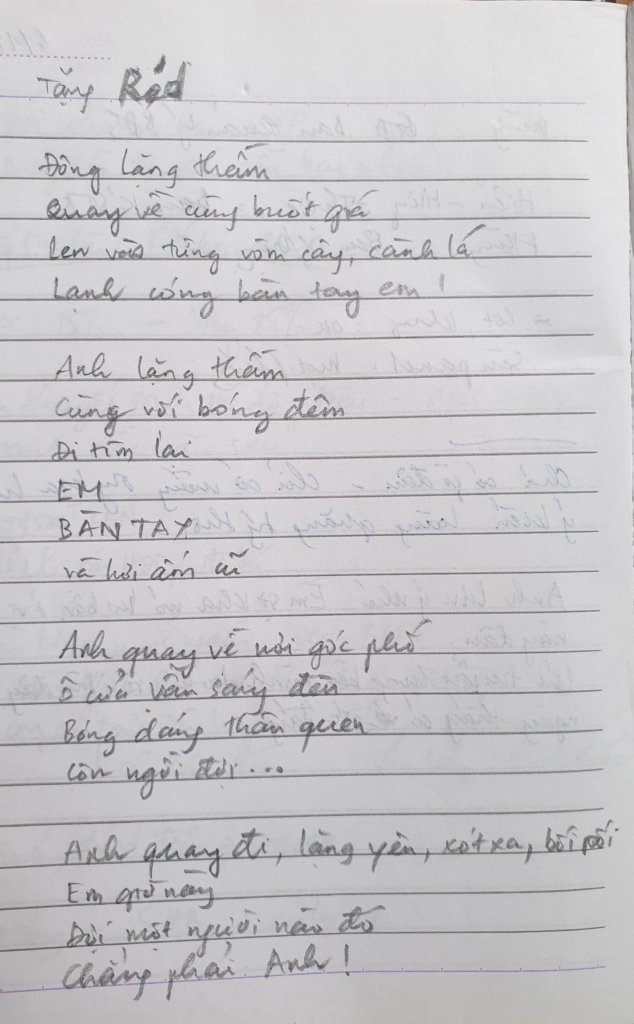 Tặng Red
Đông lặng thầm
Quay về cùng buốt giá
Len vào từng vòm cây, cành lá
Lạnh cóng bàn tay em!
Anh lặng thầm
Cùng với bóng đêm
Đi tìm lại
EM
BÀN TAY
và hơi ấm cũ
Anh quay về nơi góc phố
Ô cửa vẫn sáng đèn
Bóng dáng thân quen
Còn ngồi đợi...
Anh quay đi, lặng yên, xót xa, bối rối
Em giờ này
Đợi một người nào đó
Chẳng phải Anh!